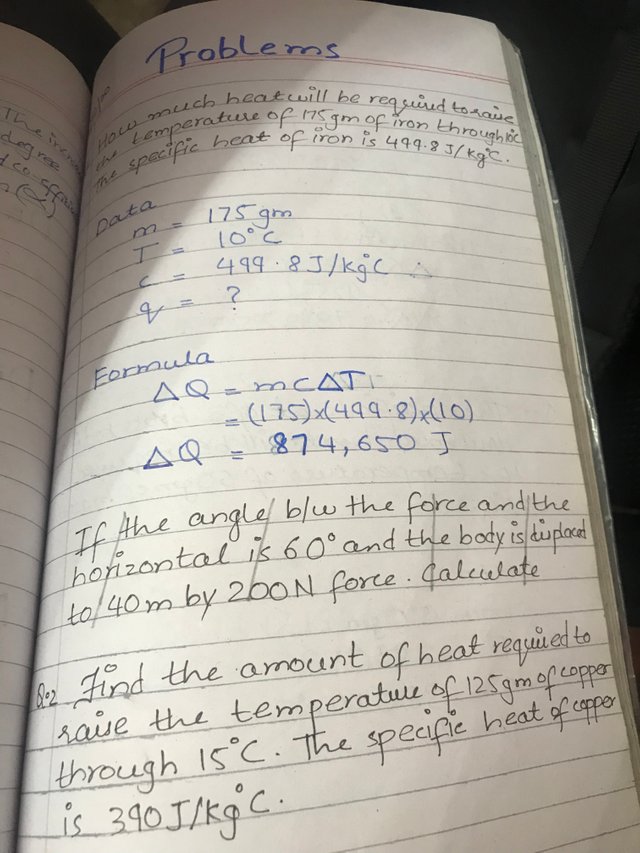 Problems
How much heat will be required to raise
the temperature of 175 gm of iron through 10°C
The specific heat of iron is 499.8 J/kg°C.
Data
m = 175 gm
T = 10°C
c = 499.8 J/kg°C
q = ?
Formula
ΔQ = mcΔT
= (175)x(499.8)x(10)
ΔQ = 874,650 J
If the angle b/w the force and the
horizontal is 60° and the body is displaced
to 40m by 200N force. Calculate
Q.2 Find the amount of heat required to
raise the temperature of 125gm of copper
through 15°C. The specific heat of copper
is 390 J/kg°C.
The
degree